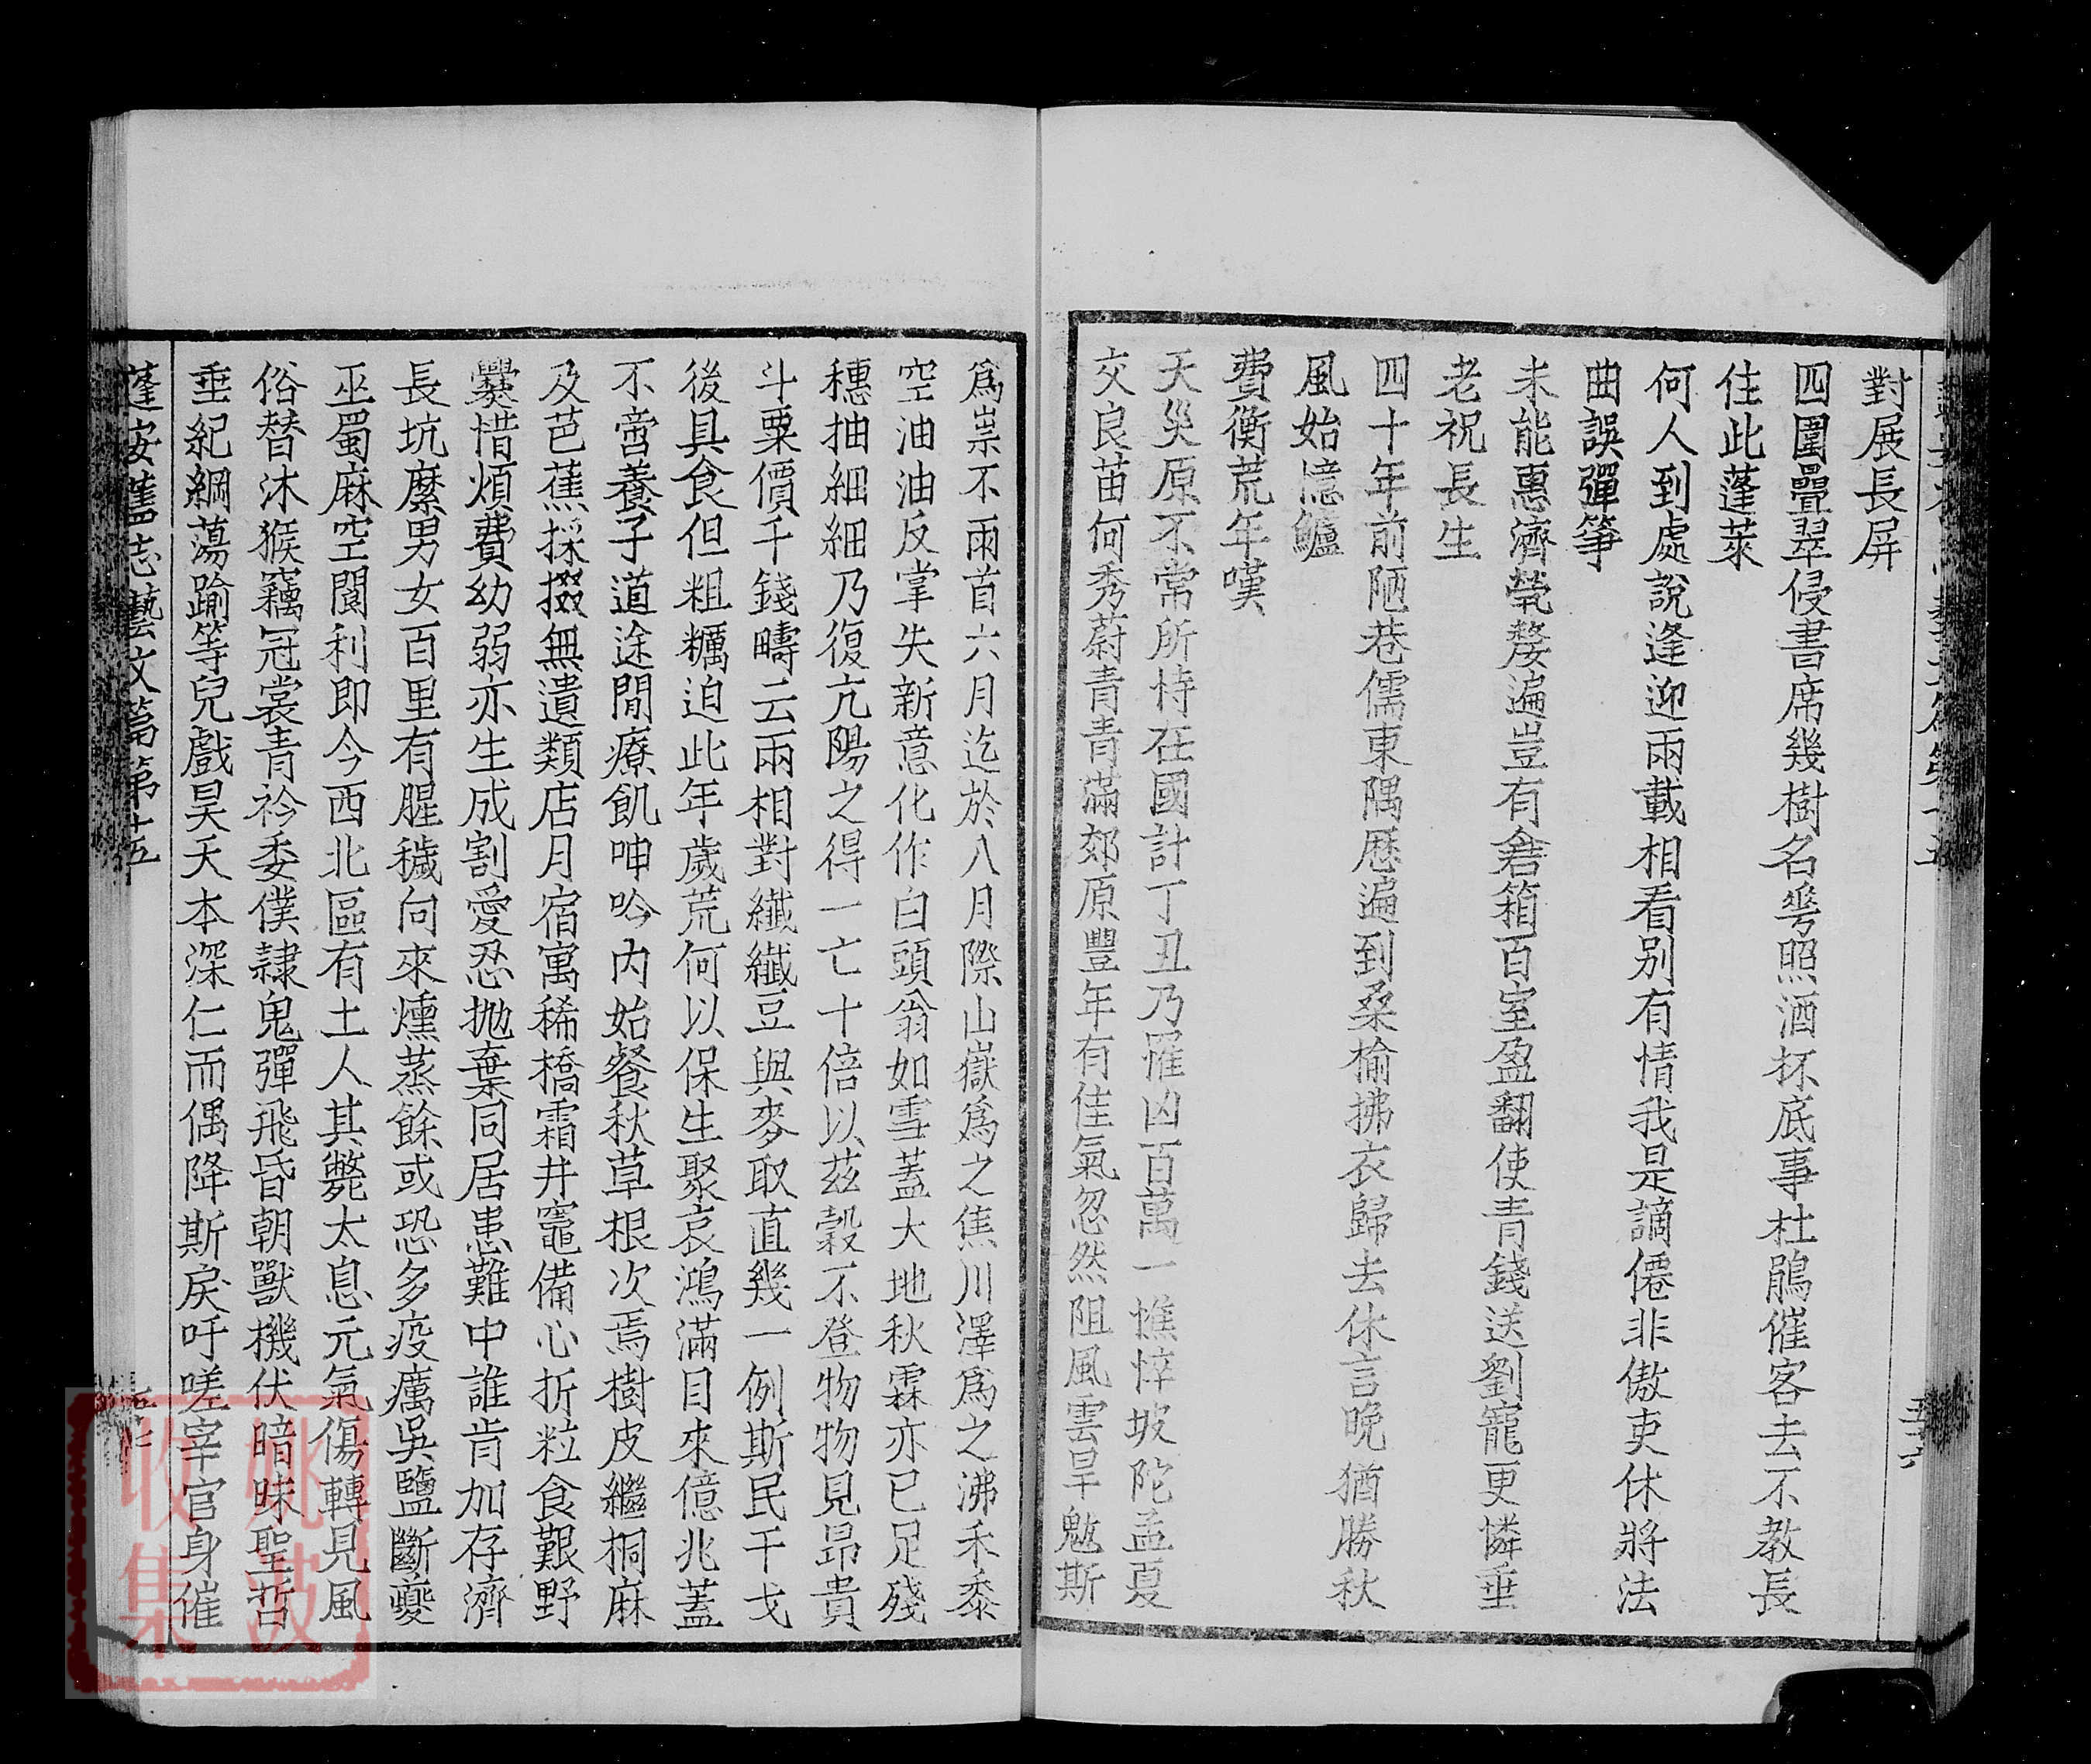 對展長屏
四圍疊翠侵書席幾樹名蕚照酒杯底事杜鵑催客去不教長
住此蓬萊
何人到處說逢迎兩載相看别有情我是謫僊非傲吏休將法
曲誤彈箏
未能惠濟煢嫠遍豈有倉箱百室盈翻使青錢送劉寵更憐垂
老祝長生
四十年前陋巷儒東隅歷遍到桑榆拂衣歸去休言晚猶勝秋
風始憶鱸
費衡荒年嘆
天災原不常所恃在國計丁丑乃罹凶百萬一憔悴坡陀孟夏
交良苗何秀蔚青青滿郊原豐年有佳氣忽然阻風雲旱魃斯
爲祟不雨首六月迄於八月際山嶽爲之焦川澤爲之沸禾黍
空油油反掌失新意化作白頭翁如雪蓋大地秋霖亦已足殘
穗抽細細乃復亢陽之得一亡十倍以茲穀不登物物見昂貴
斗粟價千錢疇云兩相對纖纖豆與麥取直幾一例斯民千戈
後具食但粗糲迫此年歲荒何以保生聚哀鴻滿目來億兆蓋
不啻養子道途間療飢呻吟內始餐秋草根次焉樹皮繼桐麻
及芭蕉採掇無遺類店月宿寓稀橋霜井竈備心折粒食艱野
爨惜煩費幼弱亦生成割愛忍抛棄同居患難中誰肯加存濟
長坑縻男女百里有腥穢向來燻蒸餘或恐多疫癘吳鹽斷夔
巫蜀麻空閬利即今西北區有土人其斃太息元氣傷轉見風
俗替沐猴竊冠裳青衿委僕隷鬼彈飛昏朝獸機伏暗昧聖哲
垂紀綱蕩踰等兒戲昊天本深仁而偶降斯戾吁嗟宰官身催
蓬安縣志藝文篇第十五
姚波
收集